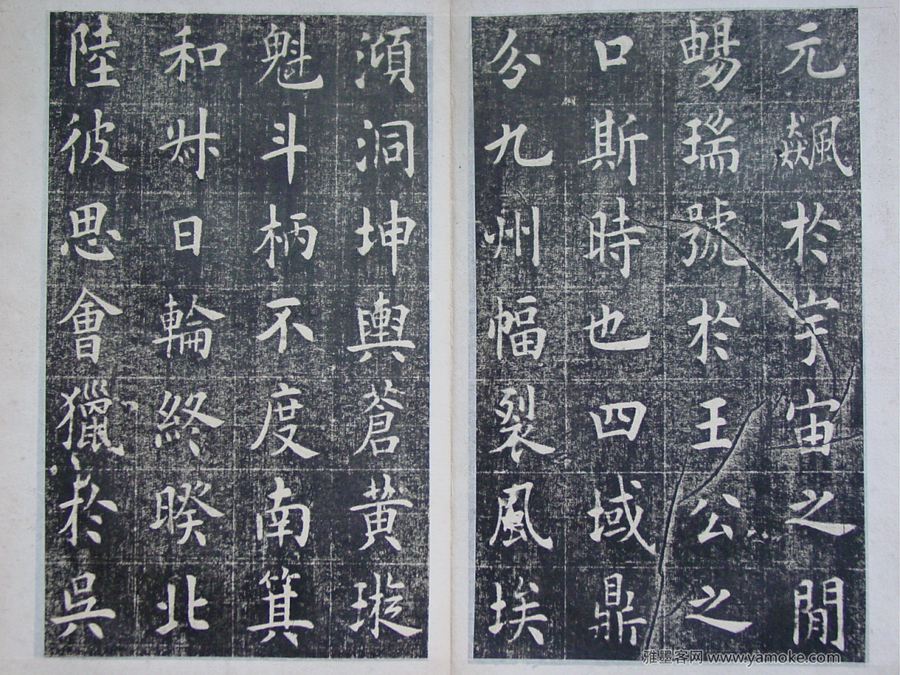 元飆於宇宙之閒
暢瑞號於王公之
口斯時也四域鼎
分九州幅裂風埃
澒洞坤輿蒼黃璇
魁斗柄不度南箕
和叔日輪終暌北
陸彼思會獵於吳
雅墨客网 www.yamoke.com